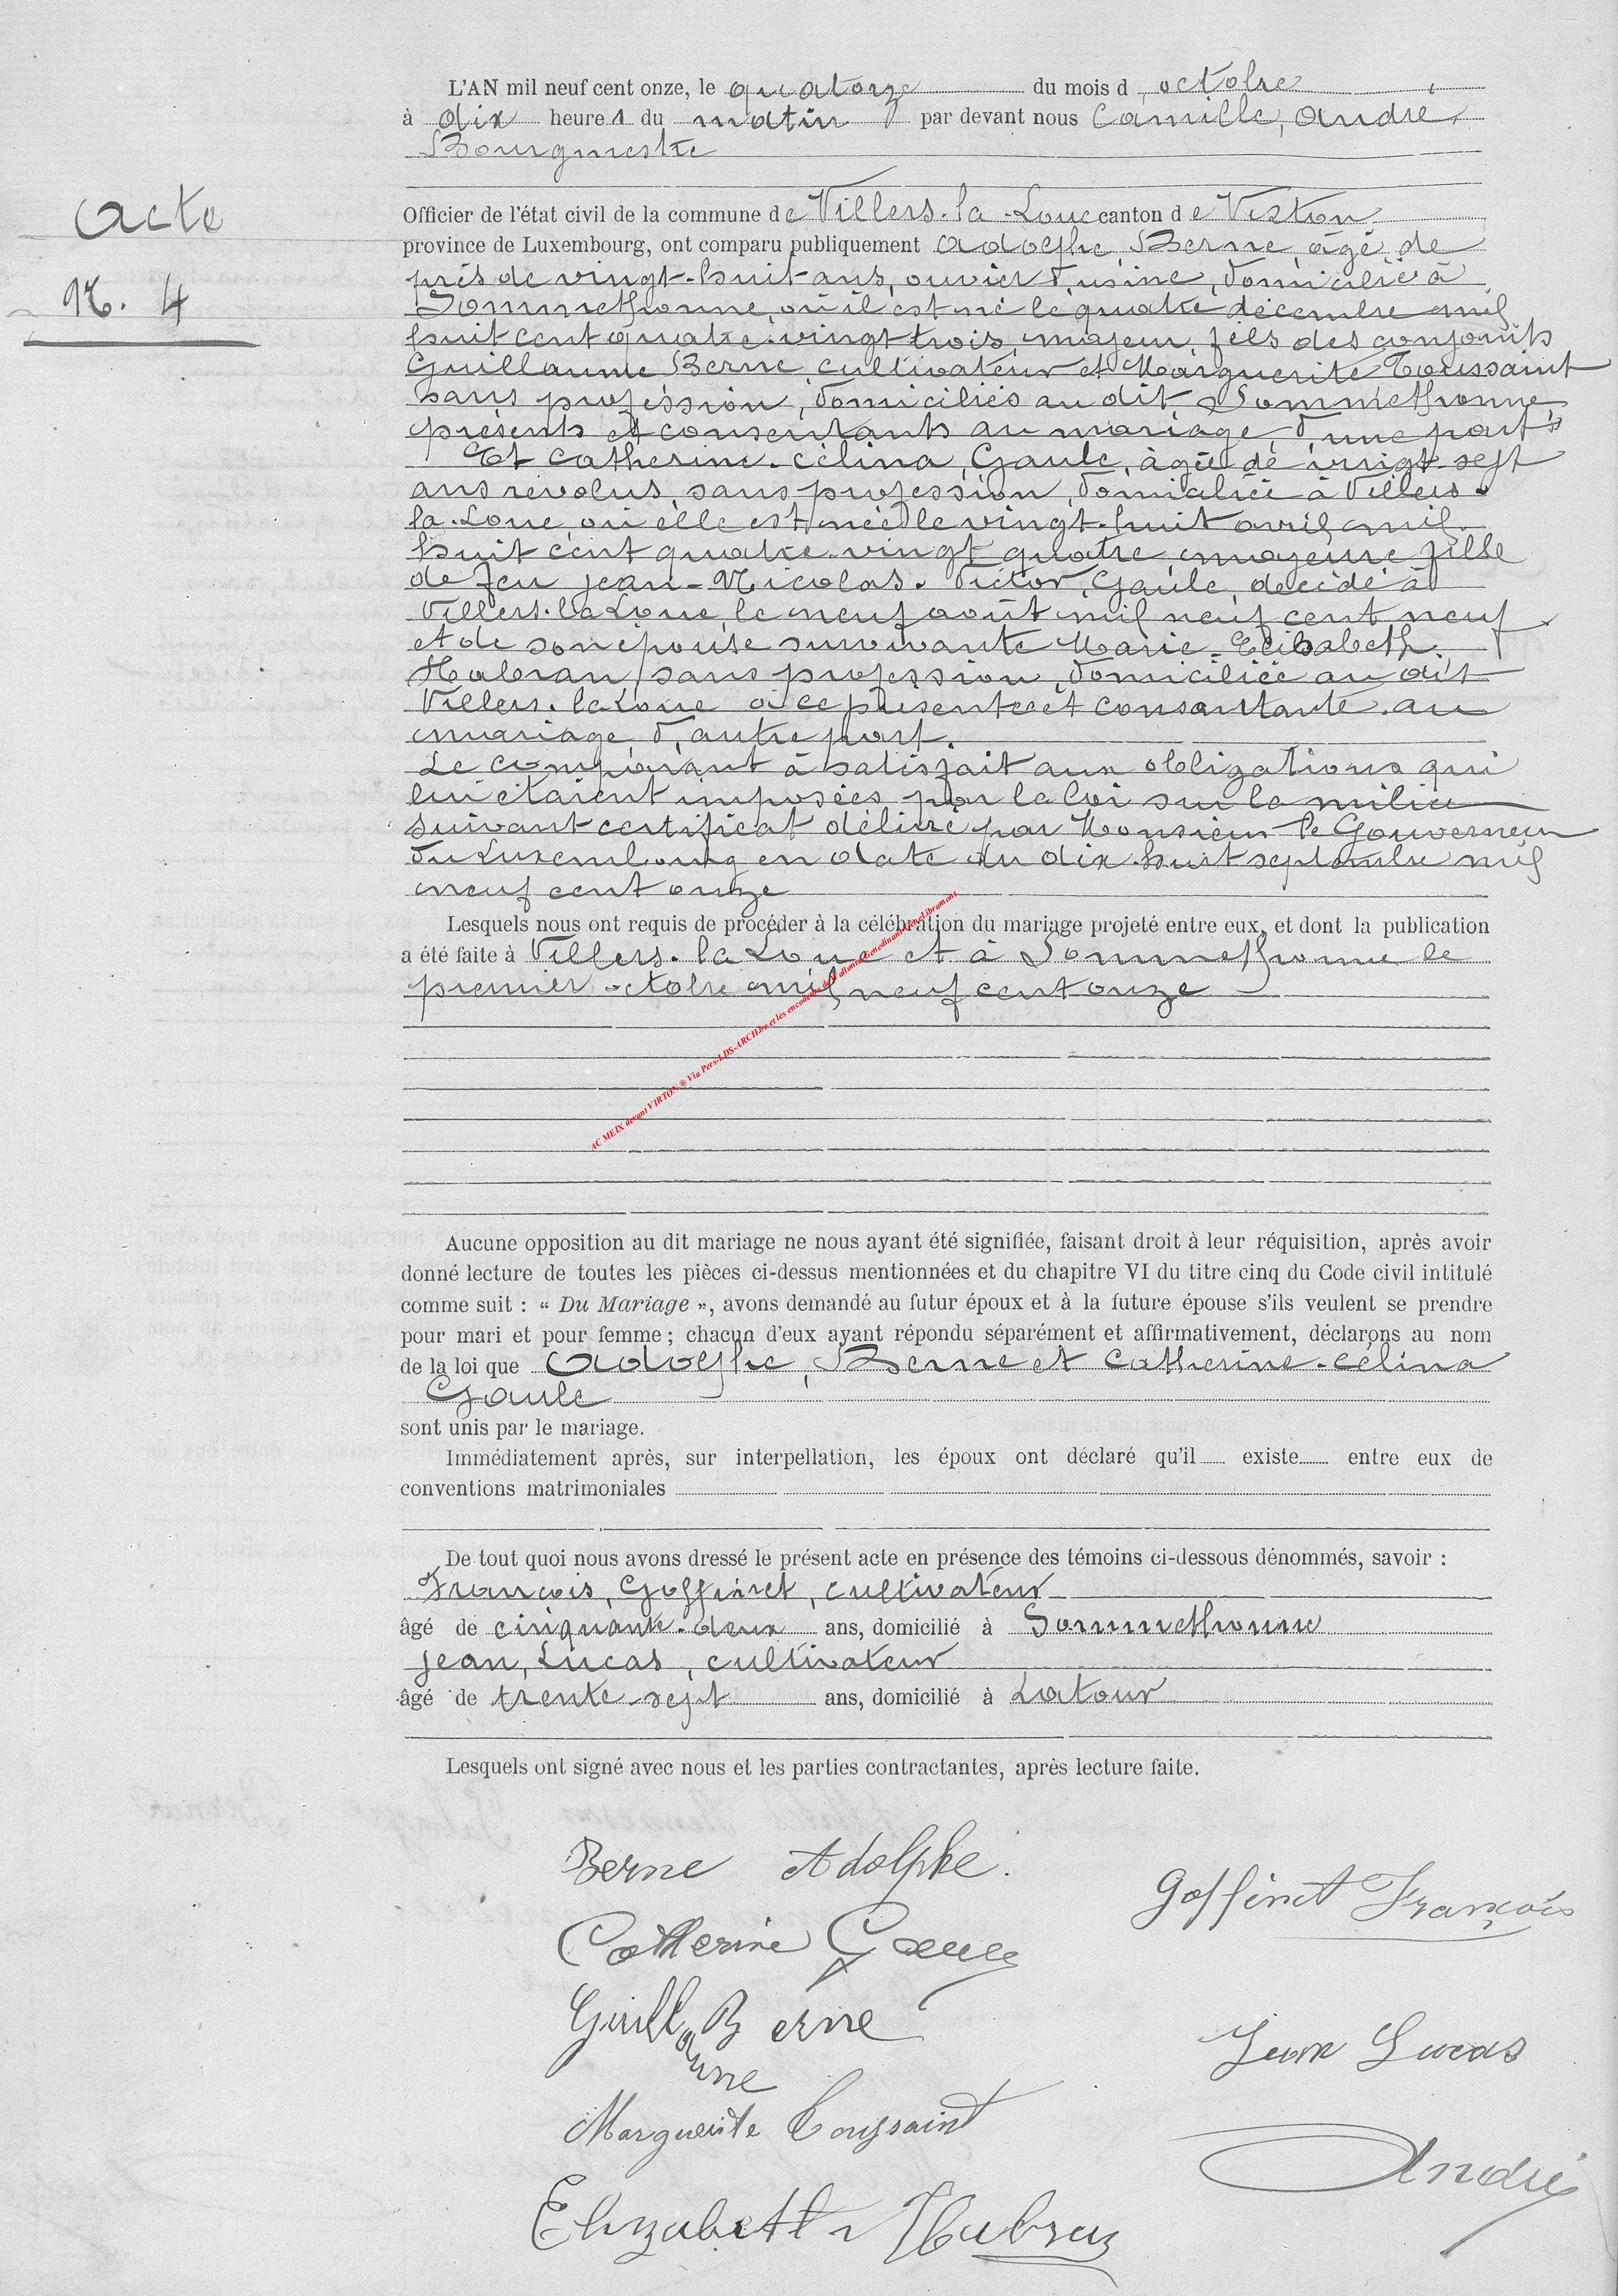 Acte
N. 4
L'AN mil neuf cent onze, le quatorze du mois d'octobre
à dix heures du matin par devant nous Camille, André,
Bourgmestre
Officier de l'état civil de la commune de Villers-la-Loue canton de Virton
province de Luxembourg, ont comparu publiquement Adolphe, Berne, âgé de
près de vingt-huit ans, ouvrier d'usine, domicilié à
Sommethonne, où il est né le quatre décembre mil
huit cent quatre-vingt trois, majeur, fils des conjoints
Guillaume Berne, cultivateur et Marguerite Toussaint
sans profession, domiciliés au dit Sommethonne,
présents et consentants au mariage, d'une part;
Et Catherine-Célina, Gaule, âgée de vingt-sept
ans révolus, sans profession, domiciliée à Villers-
la-Loue, où elle est née le vingt-huit avril mil
huit cent quatre-vingt quatre, majeure, fille
de feu Jean-Nicolas-Victor, Gaule, décédé à
Villers-la-Loue, le neuf août mil neuf cent neuf
et de son épouse survivante Marie-Elisabeth
Habran, sans profession, domiciliée au dit
Villers-la-Loue à ce présente et consentante au
mariage, d'autre part.
Le comparant à satisfait aux obligations qui
lui étaient imposées par la loi sur la milice
suivant certificat délivré par Monsieur le Gouverneur
du Luxembourg en date du dix-huit septembre mil
neuf cent onze
Lesquels nous ont requis de procéder à la célébration du mariage projeté entre eux, et dont la publication
a été faite à Villers-la-Loue et à Sommethonne le
premier octobre mil neuf cent onze
AC MEIX devant VIRTON ® Via Pers-LDS-ARCH.be et les encodeurs de
Aucune opposition au dit mariage ne nous ayant été signifiée, faisant droit à leur réquisition, après avoir
donné lecture de toutes les pièces ci-dessus mentionnées et du chapitre VI du titre cinq du Code civil intitulé
comme suit : « Du Mariage », avons demandé au futur époux et à la future épouse s'ils veulent se prendre
pour mari et pour femme ; chacun d'eux ayant répondu séparément et affirmativement, déclarons au nom
de la loi que Adolphe, Berne et Catherine-Célina
Gaule
sont unis par le mariage.
Immédiatement après, sur interpellation, les époux ont déclaré qu'il existe entre eux de
conventions matrimoniales
De tout quoi nous avons dressé le présent acte en présence des témoins ci-dessous dénommés, savoir :
François, Goffinet, cultivateur
âgé de cinquante-deux ans, domicilié à Sommethonne
Jean, Lucas, cultivateur
âgé de trente-sept ans, domicilié à Latour
Lesquels ont signé avec nous et les parties contractantes, après lecture faite.
Berne Adolphe.
Goffinet François
Catherine Gaule
Guillaume Berne
Jean Lucas
Marguerite Toussaint
André
Elizabeth Habran